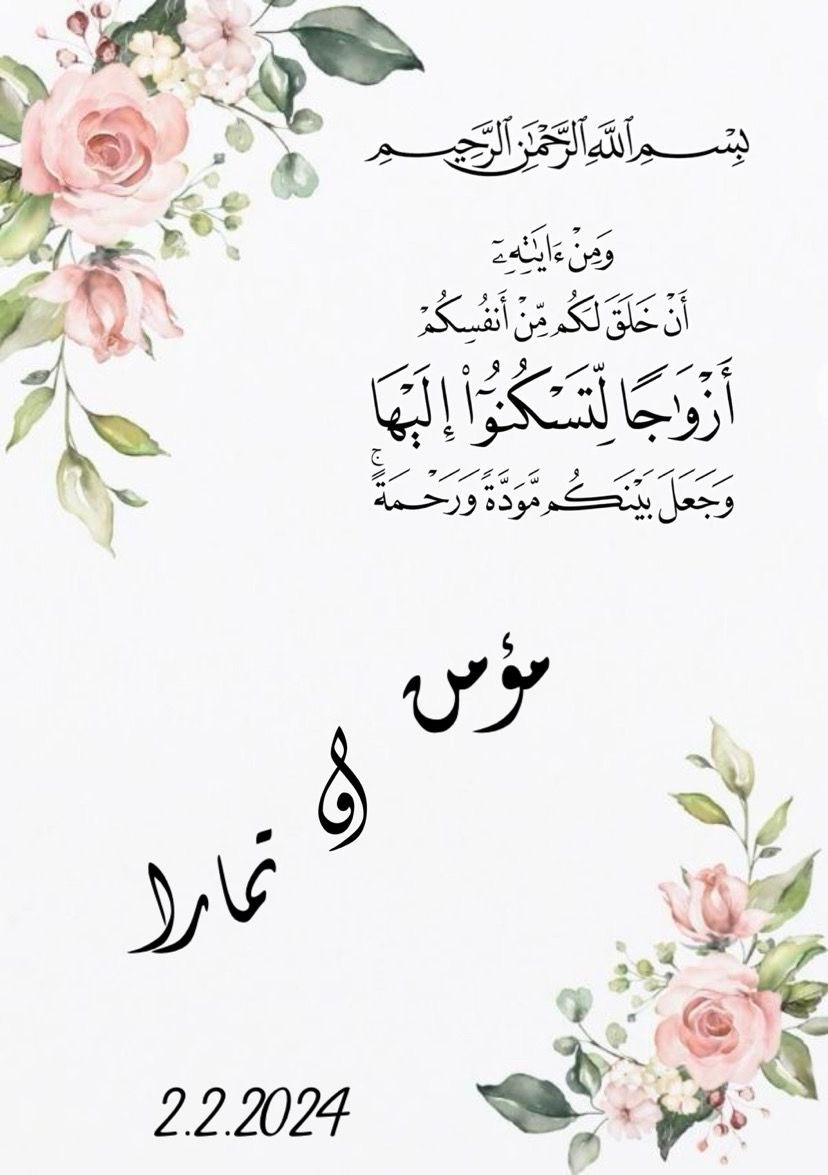 بِسْمِ ٱللَّهِ ٱلرَّحْمَٰنِ ٱلرَّحِيمِ
وَمِنْ ءَايَٰتِهِۦٓ
أَنْ خَلَقَ لَكُم مِّنْ أَنفُسِكُمْ
أَزْوَٰجًا لِّتَسْكُنُوٓا۟ إِلَيْهَا
وَجَعَلَ بَيْنَكُم مَّوَدَّةً وَرَحْمَةً ۚ
مؤمن
و
تمارا
2.2.2024